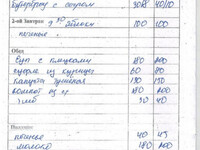 Бутерброд с сыром 30/8 40/10
2-ой Завтрак яблоки 100 100
печенье
Обед
Суп с клецками 180 200
из курицы 60 80
Капуста тушеная 130 150
Компот из 180 200
Хлеб 30 40
Полдник
печенье 40 45
молоко 180 200